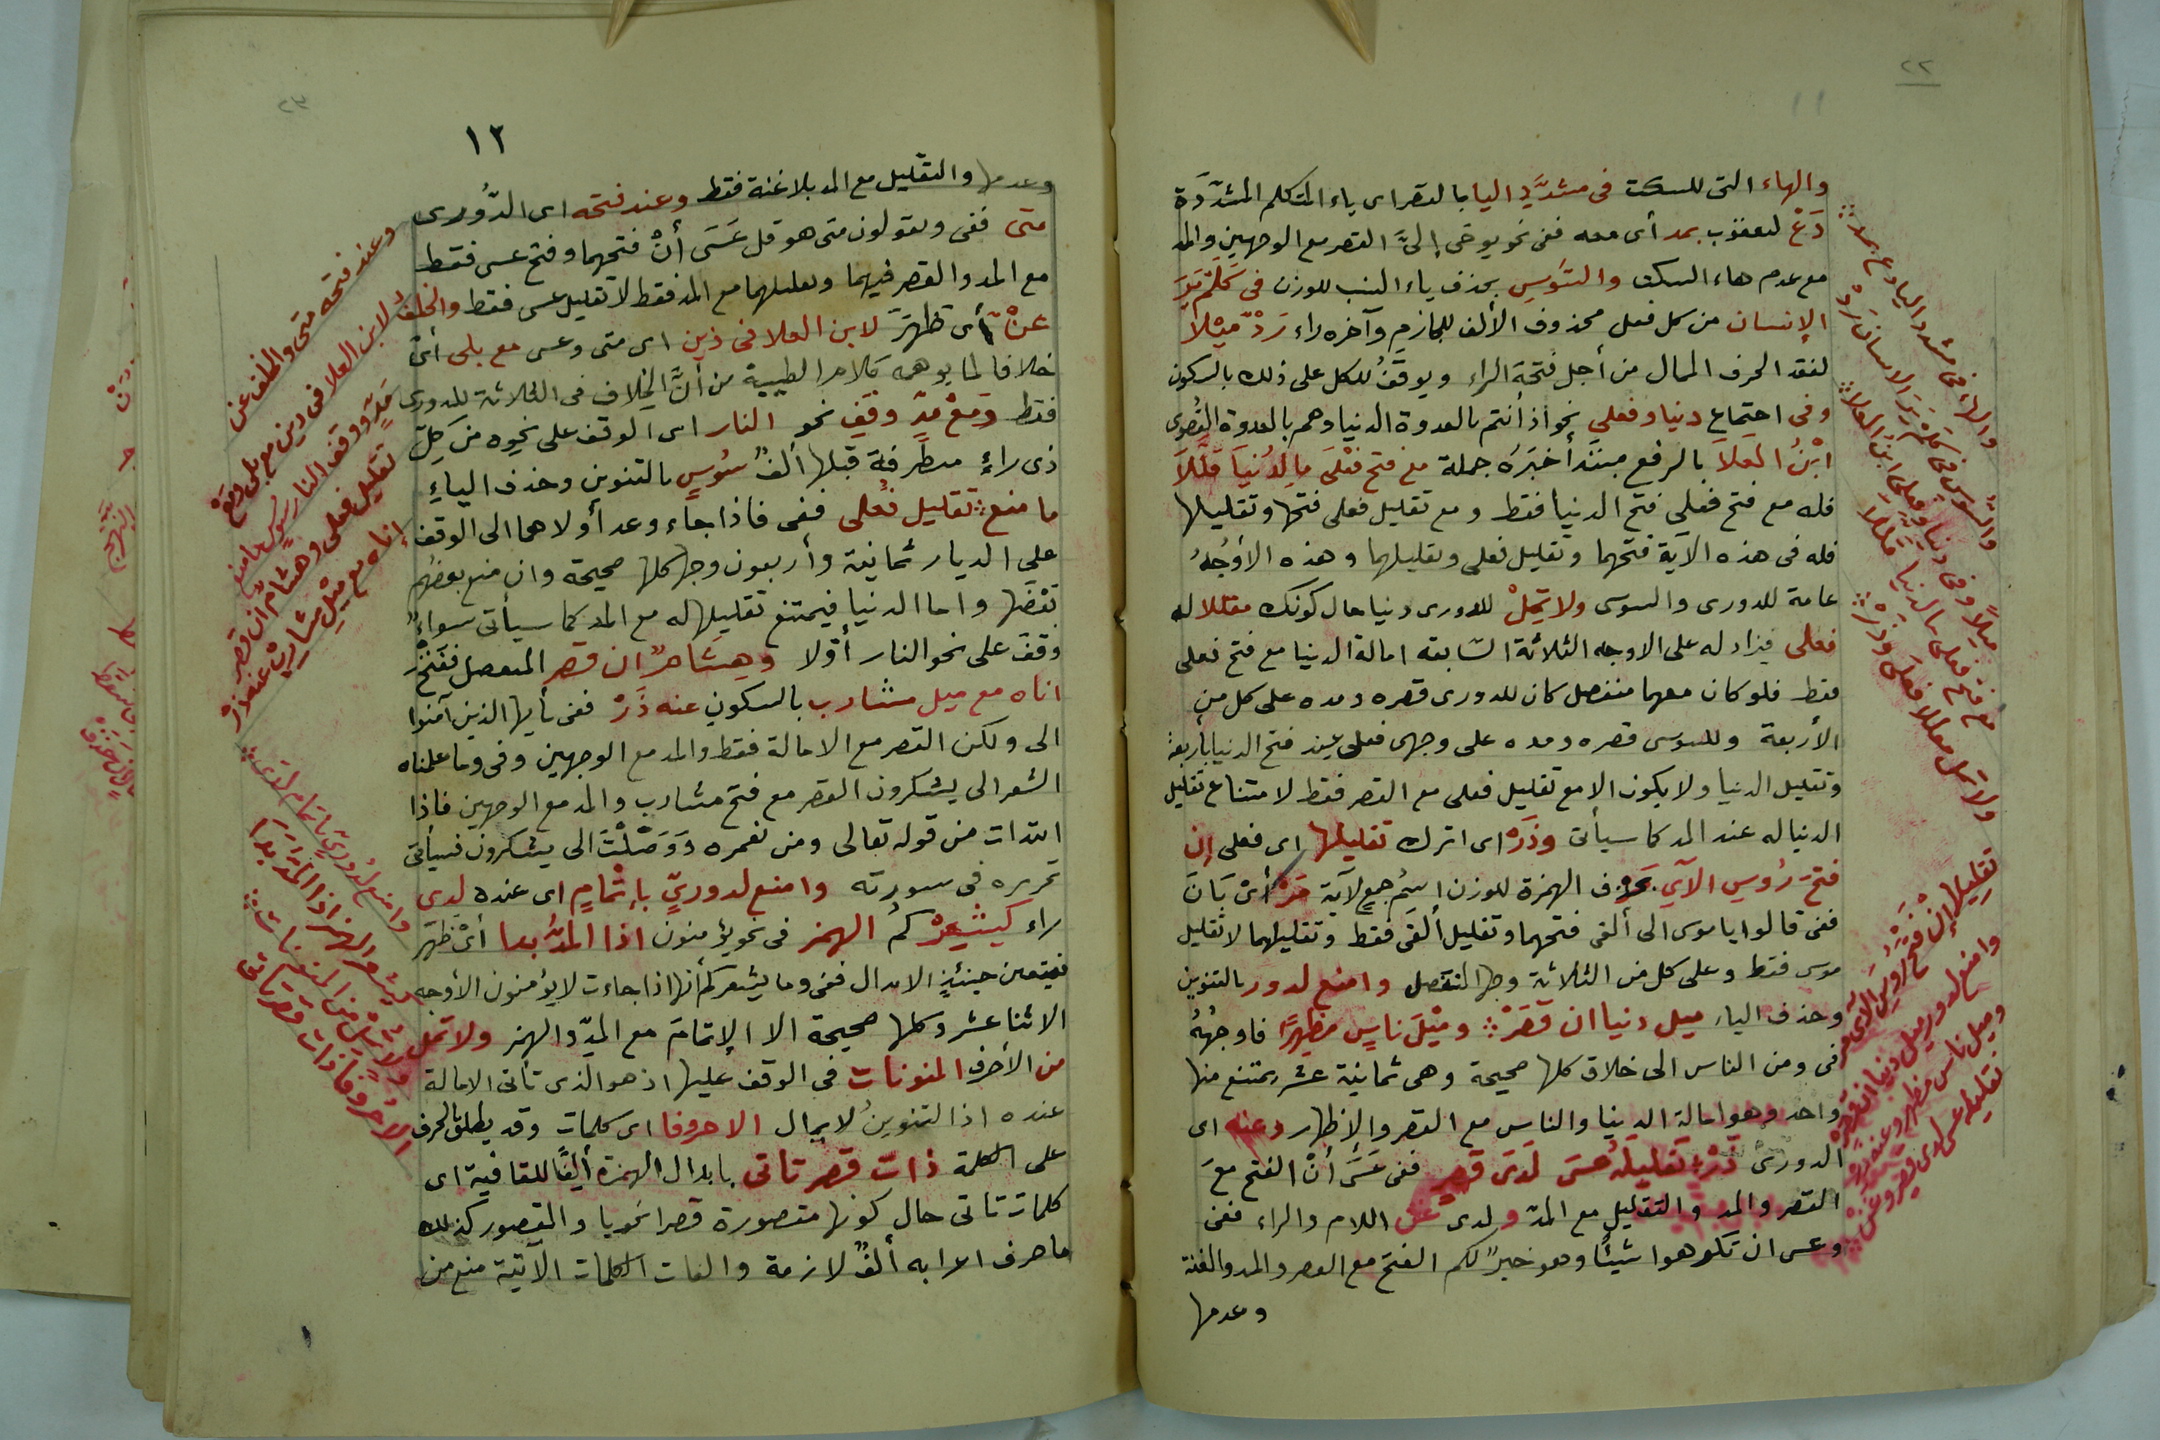 ٢٢
والهاء التى للسكت فى مشدَّدِ اليا بالقصر اى ياء المتكلم المشدَّدَة
دَعْ ليعقوب بمد أى معه ففى نحو يوحى إلىَّ القصر مع الوجهين والمد
مع عدم هاء السكت والسُّوسِ بحذف ياء النسب للوزن فى كَلَمْ يَرَ
الإنسان من كل فعل محذوف الألف للجازم وآخره راء رَدْ مَيْلاً
لفقد الحرف الممال من أجل فتحة الراء ويوقَفُ للكل على ذلك بالسكون
وفى اجتماع دنيا وفعلى نحو اذ أنتم بالعدوة الدنيا وهم بالعدوة القصوى
ابْنُ العَلاَ بالرفع مبتدأ خبَرُه جملة مع فتح فعْلَى بالدُنيا قَلَّلاَ
فله مع فتح فعلى فتح الدنيا فقط ومع تقليل فعلى فتحها وتقليلها
فله فى هذه الآية فتحهما وتقليل فعلى وتقليلهما وهذه الأوجُهُ
عامة للدورى والسوسى ولا تُمِلْ للدورى دنيا حال كونك مقللا له
فعلى فيزاد له على الاوجه الثلاثة السَّابقه امالة الدنيا مع فتح فعلى
فقط فلو كان معهما منفصل كان للدورى قصره ومده على كل من
الأربعة وللسوسى قصره ومده على وجهى فعلى عند فتح الدنيا بأربعة
وتقليل الدنيا ولا يكون الا مع تقليل فعلى مع القصر فقط لامتناع تقليل
الدنيا له عند المد كما سيأتى وذَرْ اى اترك تقليلها اى فعلى إن
فتحَ رُوسِ الآىِ بحذف الهمزة للوزن اسمُ جمعٍ لآية مَرْ أىْ بَانَ
ففى قالوا يا موسى الى ألقى فتحهما وتقليل ألقى فقط وتقليلهما لا تقليل
موسى فقط وعلى كل من الثلاثة وجها المنفصل وامنع لدور بالتنوين
وحذف الياء ميل دنيا ان قصَرْ وميْلَ ناسٍ مظهِراً فاوجُهُهُ
فى ومن الناس الى خلاق كلها صحيحة وهى ثمانية عشر يمتنع منها
واحد وهو امالة الدنيا والناس مع القصر والإظهار وعنه اى
الدورى ذَرْ تقليلَه عسى لَدَى قصرٍ ففى عَسَى أنْ الفتح معَ
القصر والمد والتقليل مع المدّ ولدى غنّ اللام والراء ففى
وعسى ان تكرهوا شيئًا وهو خيرٌ لكم الفتح مع القصر والمد والغنة
وعدمها
والهاء فى مشدد اليا دع بمد
والسُّوسِ فى كلم يَرَ الانسان رَدْ
ميلاً وفى دنيا وفعلى ابن العلا
مع فتح فعلى بالدنيا قللا
ولا تمل مقللا فعلى وذرْ
تقليلها إنْ فتحَ رُوسِ الآىِ مر
وامنع لدور ميل دنيا ان قصر
وميل ناس مظهرا وعنه ذر
تقليله عسى لدى قصر وغن
٢٣
١٢
وعدمها والتقليل مع المد بلا غنة فقط وعند فتحه اى الدُّورى
متى ففى ويقولون متى هو قل عَسَى أنْ فتحهما وفتح عسى فقط
مع المد والقصر فيهما وتقليلهما مع المد فقط لا تقليل عسى فقط والخلفُ
عنْ أى ظهَرَ لابن العلا فى ذين اى متى وعسى مع بلى أنى
خلافا لما يوهمه كلام الطيبة من أنَّ الخلاف فى الثلاثة للدورى
فقط ومَعْ مدّ وقفِ نحو النار اى الوقف على نحوه من كلّ
ذى راءٍ متطرفة قبلها ألفٌ سُوسٍ بالتنوين وحذف الياءِ
ما منع تقليل فُعْلى ففى فاذا جاء وعد أولاهما الى الوقف
على الديار ثمانية وأربعون وجها كلها صحيحة وان منع بعضُهم
بَعْضَها واما الدنيا فيمتنع تقليلها له مع المد كما سيأتى سواءٌ
وقفَ على نحو النار أوّلا وهِشَامٌ ان قصر المنفصل ففتحَ
اناه مع ميل مشارب بالسكون عنه ذَرْ ففى يأيها الذين آمنوا
الى ولكن القصر مع الامالة فقط والمد مع الوجهين وفى وما علمناه
الشعر الى يشكرون القصر مع فتح مشارب والمد مع الوجهين فاذا
ابتدات من قوله تعالى ومن نعمره ووَصَلْتَ الى يشكرون فسيأتى
تحريره فى سورته وامنع لدورىٍّ بإتْمامٍ اى عنده لدى
راء كيُشعِرْكمُ الهمز فى نحو يؤمنون اذا المدُّ بدا أىْ ظهَر
فيتعين حينئذٍ الابدال ففى وما يشعركم أنها اذا جاءت لا يؤمنون الأوجه
الاثنا عشر وكلها صحيحة الا الإتمامَ مع المدّ والهمز ولا تمل
من الأحرف المنونات فى الوقف عليها اذ هو الذى تأتى الامالة
عنده اذ التنوينُ لا يمال الا حروفا اى كلمات وقد يطلق الحرف
على الكلمة ذات قصر تاتى بابدال الهمزة ألِفًا للقافية اى
كلمات تاتى حال كونها مقصورة قصرا نحويا والمقصور كذلك
ما حرف اعرابه ألفٌ لازمة والفات الكلمات الآتية منع من
وعند فتحه متى والخلف عن
لابن العلا فى ذين مع بلى ومَعْ
مَدٍّ ووقف النار سُوسٍ ما منع
تقليل فعلى وهشامٌ ان قصر
إناه مع ميْلِ مشاربْ عنه ذرْ
وامنع لدُورىٍّ باتمام لدى
يشعر الهمز اذا المدُّ بدا
ولا تُمِلْ من المنونات
الا حروفًا ذات قصر تاتى